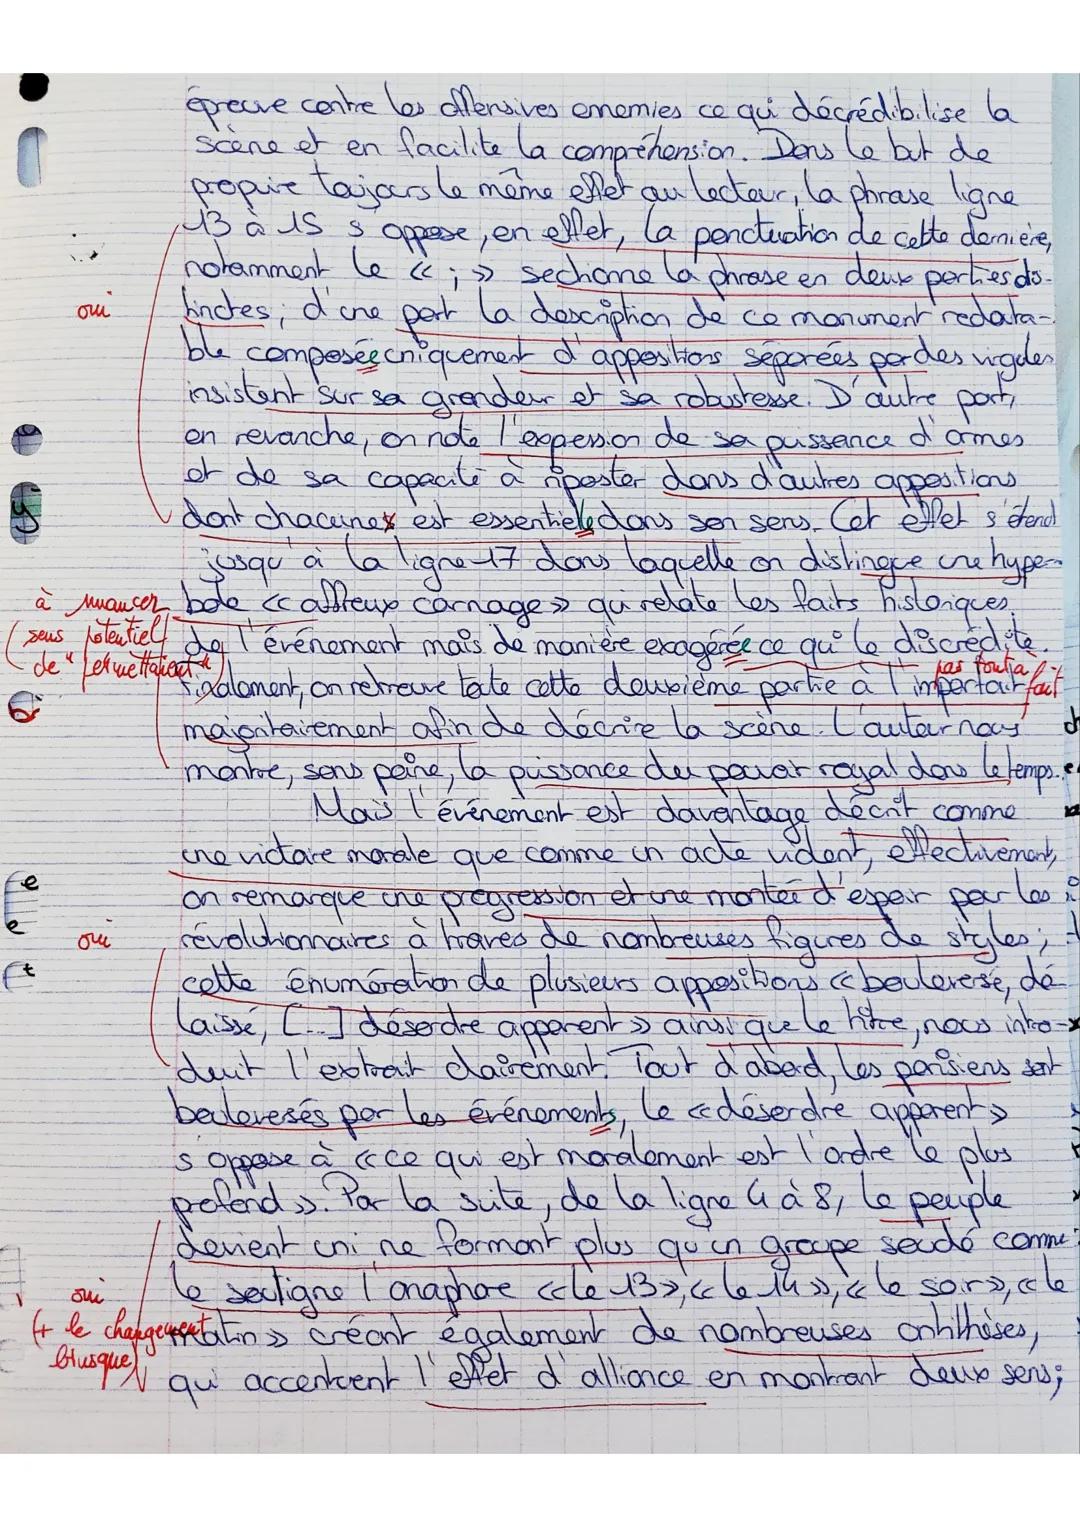 épreuve contre les offensives ennemies ce qui décrédibilise la
scène et en facilite la compréhension. Dans le but de
propuire toujours le même effet au lecteur, la phrase ligne
13 à 15 s'oppose, en effet, la ponctuation de cette dernière,
notamment le « ; » sectionne la phrase en deux parties dis-
oui
tinctes ; d'une part la description de ce monument redouta-
ble composée uniquement d'appositions séparées par des virgules
insistant sur sa grandeur et sa robustesse. D'autre part,
en revanche, on note l'expession de sa puissance d'armes
et de sa capacité à riposter dans d'autres appositions
dont chacune est essentielle dans son sens. Cet effet s'étend
jusqu'à la ligne 17 dans laquelle on distingue une hyper-
à nuancer
bole « affreux carnage » qui relate les faits historiques
(sens potentiel
de l'événement mais de manière exagérée ce qui le discrédite.
de "permettaient")
pas tout à fait
Finalement, on retrouve toute cette deuxième partie à l'imparfait
majoritairement afin de décrire la scène. L'auteur nous
montre, sans peine, la puissance du pouvoir royal dans le temps.
Mais l'événement est davantage décrit comme
une victoire morale que comme un acte violent, effectivement,
on remarque une progression et une montée d'espoir pour les
oui
révolutionnaires à travers de nombreuses figures de styles ;
cette énumération de plusieurs appositions « bouleversé, dé-
laissé, [...] désordre apparent » ainsi que le titre, nous intro-
duit l'extrait clairement. Tout d'abord, les parisiens sont
bouleversés par les événements, le « désordre apparent »
s'oppose à « ce qui est moralement est l'ordre le plus
profond ». Par la suite, de la ligne 4 à 8, le peuple
devient uni ne formant plus qu'un groupe soudé comme
oui
le souligne l'anaphore « le 13 », « le 14 », « le soir », « le
(+ le changement
matin » créant également de nombreuses antithèses,
brusque)
qui accentuent l'effet d'alliance en montrant deux sens ;